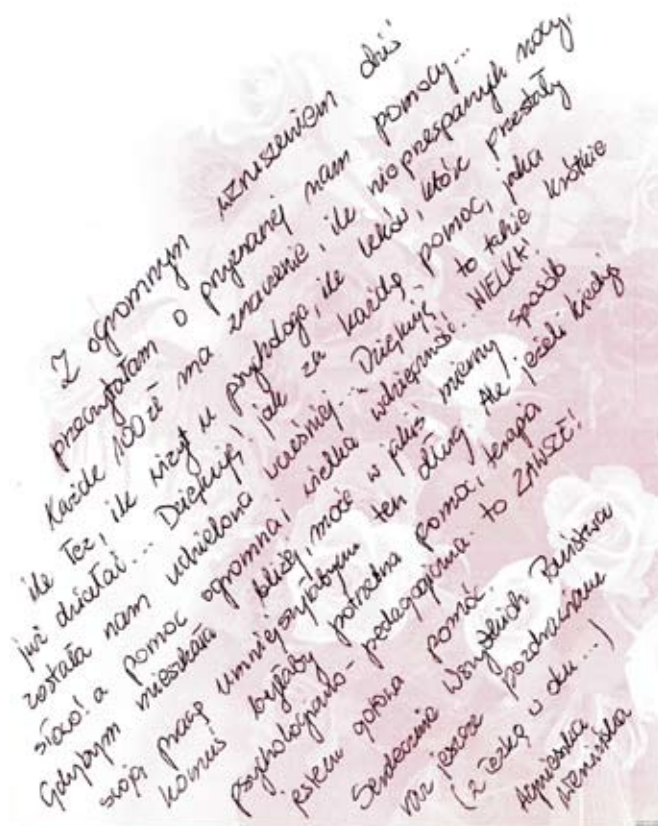 Z ogromnym wzruszeniem dziś
przeczytałam o przyznanej nam pomocy...
Każde 100 zł ma znaczenie, ile nieprzespanych nocy,
ile łez, ile wizyt u psychologa, ile leków, które przestały
już działać... Dziękuję, jak za każdą pomoc, jaka
została nam udzielona wcześniej... Dziękuję, to takie krótkie
słowo! a pomoc ogromna i wielka wdzięczność. WIELKA!
Gdybym mieszkała bliżej, może w jakiś mierny sposób
swoją pracą umniejszyłabym ten dług. Ale jeżeli kiedyś
komuś byłaby potrzebna pomoc, terapia
psychologiczno-pedagogiczna to ZAWSZE!
jestem gotowa pomóc.
Serdecznie Wszystkich Państwa
raz jeszcze pozdrawiam
(z łezką w oku...)
Agnieszka